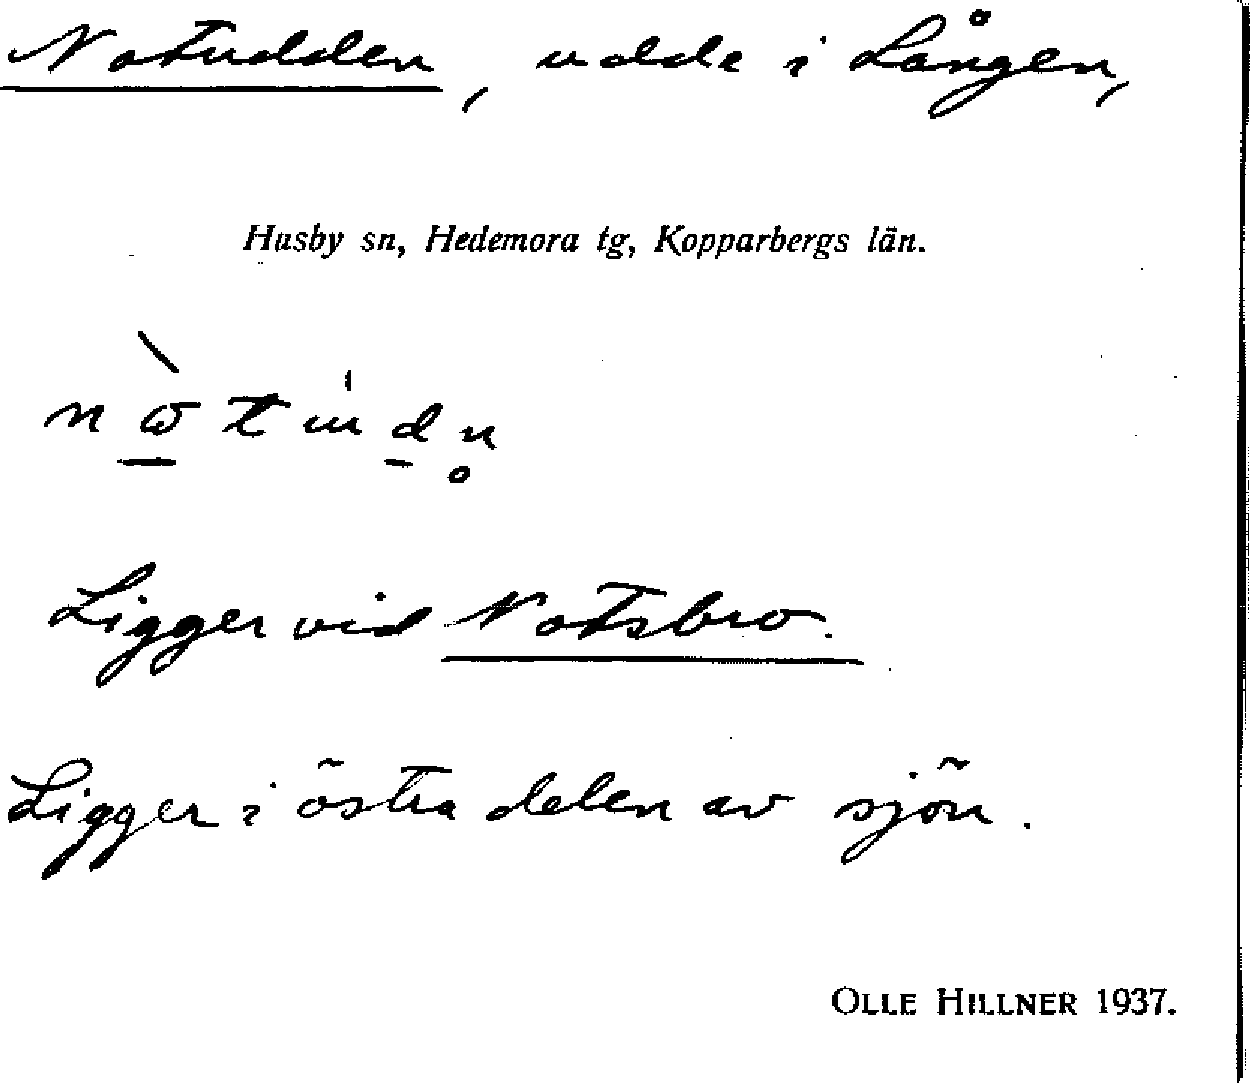 Notudden, udde i Lången,
Husby sn, Hedemora tg, Kopparbergs län.
Ligger vid Notsbro.
Ligger i östra delen av sjön.
OLLE HILLNER 1937.